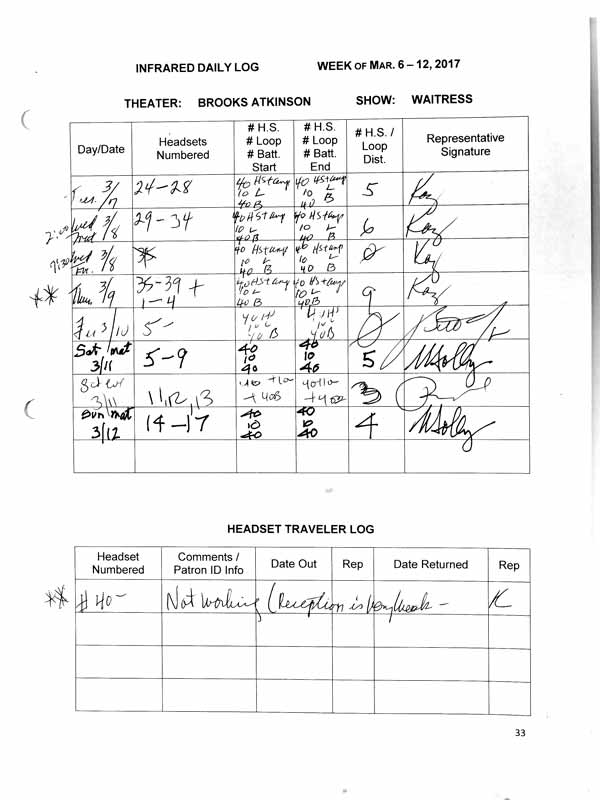 INFRARED DAILY LOG WEEK OF MAR. 6 – 12, 2017
THEATER: BROOKS ATKINSON SHOW: WAITRESS
Day/Date Headsets Numbered # H.S. # Loop # Batt. Start # H.S. # Loop # Batt. End # H.S. / Loop Dist. Representative Signature
Tues. 3/7 24-28 40 HStamp 10 L 40B 40 HStamp 10 L 40 B 5 Kaz
2:00 Wed mat 3/8 29-34 40 HStamp 10 L 40 B 40 HStamp 10 L 40 B 6 Kaz
7:30 Wed 3/8 40 HStamp 10 L 40 B 40 HStamp 10 L 40 B 0 Kaz
** Thurs 3/9 35-39 + 1-4 40 HStamp 10 L 40 B 40 HStamp 10 L 40 B 9 Kaz
Fri 3/10 5- 40 HS 40 B 0
Sat mat 3/11 5-9 40 10 40 40 10 40 5
Sat eve 3/11 11,12,13 40 +10 +40B 40+10 +40B 3
Sun mat 3/12 14-17 40 10 40 40 10 40 4
HEADSET TRAVELER LOG
Headset Numbered Comments / Patron ID Info Date Out Rep Date Returned Rep
** #40- Not working (Reception is very weak - K
33